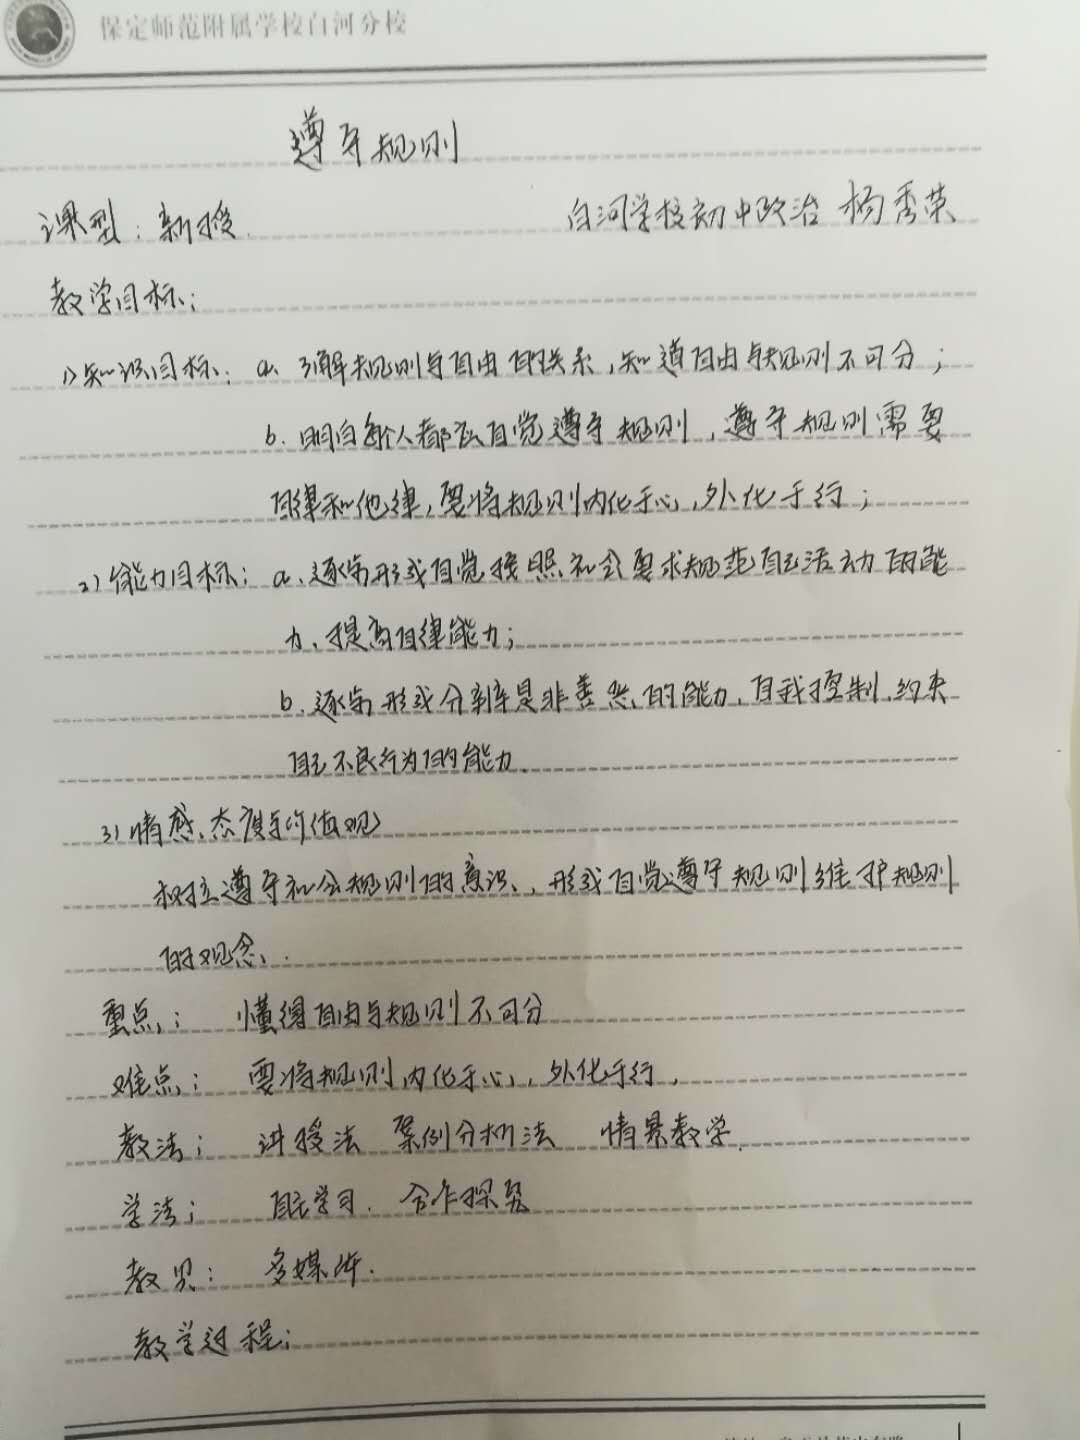 保定师范附属学校白河分校
遵守规则
课型：新授
白河学校初中政治 杨秀荣
教学目标：
1)知识目标：a.了解规则与自由的关系,知道自由与规则不可分；
b.明白每个人都应自觉遵守规则，遵守规则需要
自律和他律,要将规则内化于心,外化于行；
2)能力目标：a.逐渐形成自觉按照社会要求规范自己活动的能
力、提高自律能力；
b.逐渐形成分辨是非善恶的能力、自我控制、约束
自己不良行为的能力.
3)情感、态度与价值观
树立遵守社会规则的意识、形成自觉遵守规则维护规则
的观念.
重点： 懂得自由与规则不可分
难点： 要将规则内化于心,外化于行.
教法： 讲授法 案例分析法 情景教学.
学法： 自主学习. 合作探究
教具： 多媒体.
教学过程：